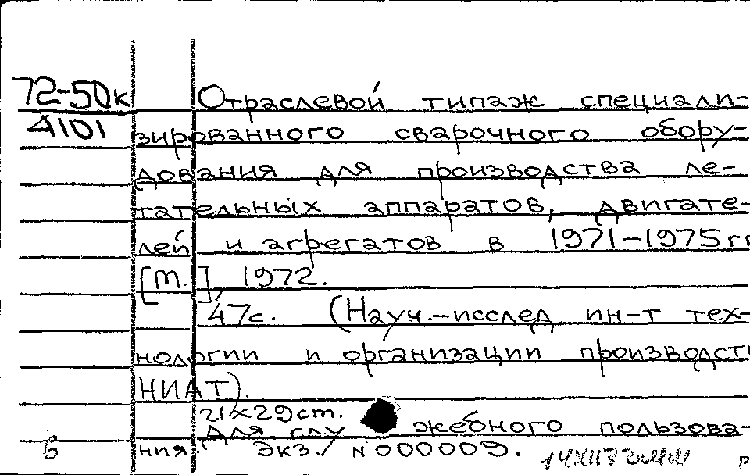 72-50к Отраслевой типаж специали-
4101 зированного сварочного обору-
дования для производства ле-
тательных аппаратов, двигате-
лей и агрегатов в 1971-1975гг
[М.], 1972.
47с. (Науч.-исслед ин-т тех-
нологии и организации производст
НИАТ).
21×29cm.
Для слу жебного пользова-
Б ния. Экз. №000009.